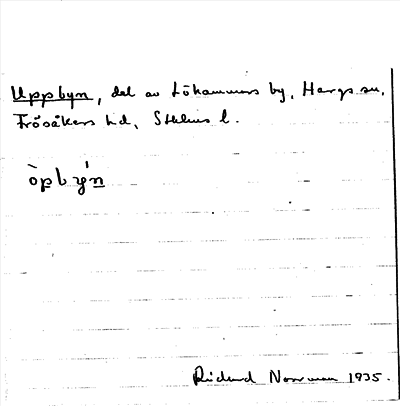 Uppbyn, del av Löhammars by, Hargs sn,
Frösåkers hd, Sthlms l.
òpbýn
Rickard Norrman 1935.